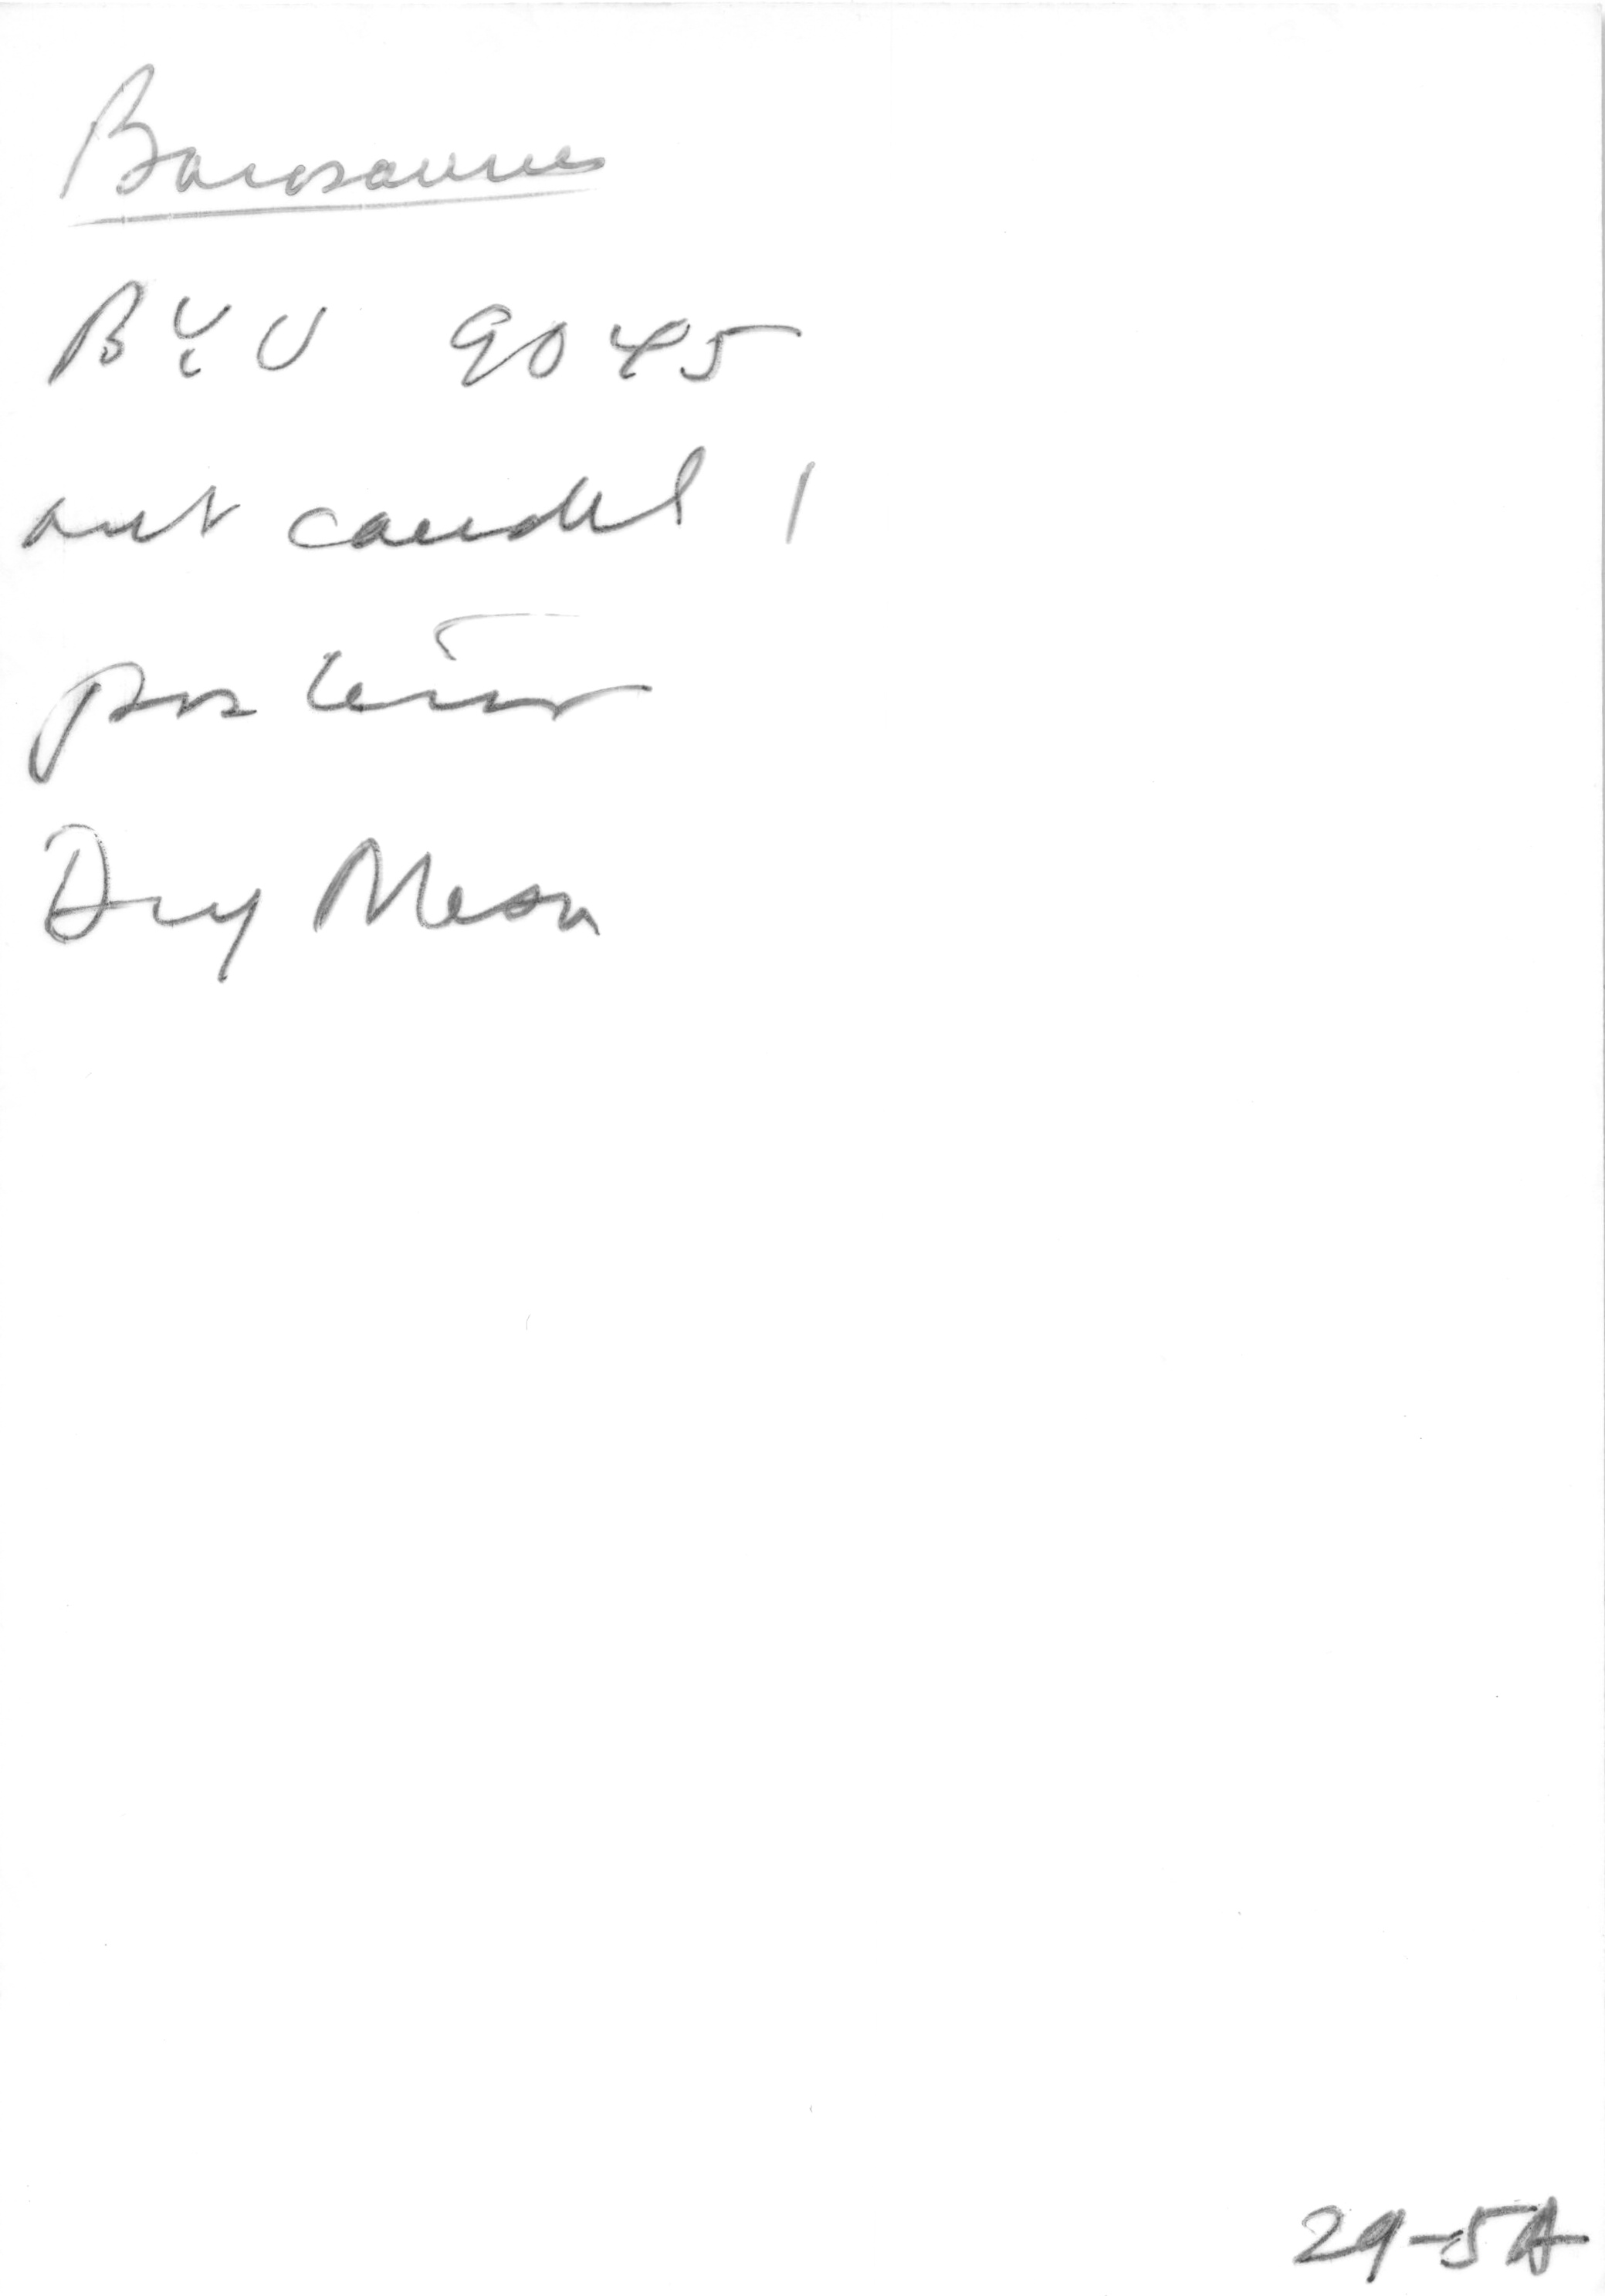 Barosaurus
BYU 9045
ant caudal 1
posterior
Dry Mesa
29-5A